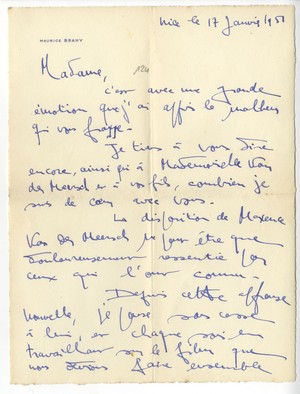 MAURICE BRAHY
Nice le 17 Janvier 1951
124
Madame,
c'est avec une grande
émotion que j'ai appris le malheur
qui vous frappe.
Je tiens à vous dire
encore, ainsi qu'à Mademoiselle Van
der Meersch et à vos fils, combien je
suis de cœur avec vous.
La disparition de Maxence
Van der Meersch ne peut être que
douloureusement ressentie par
ceux qui l'ont connu.
Depuis cette affreuse
nouvelle, je pense sans cesse
à lui, et chaque soir en
travaillant sur le film que
nous devons faire ensemble